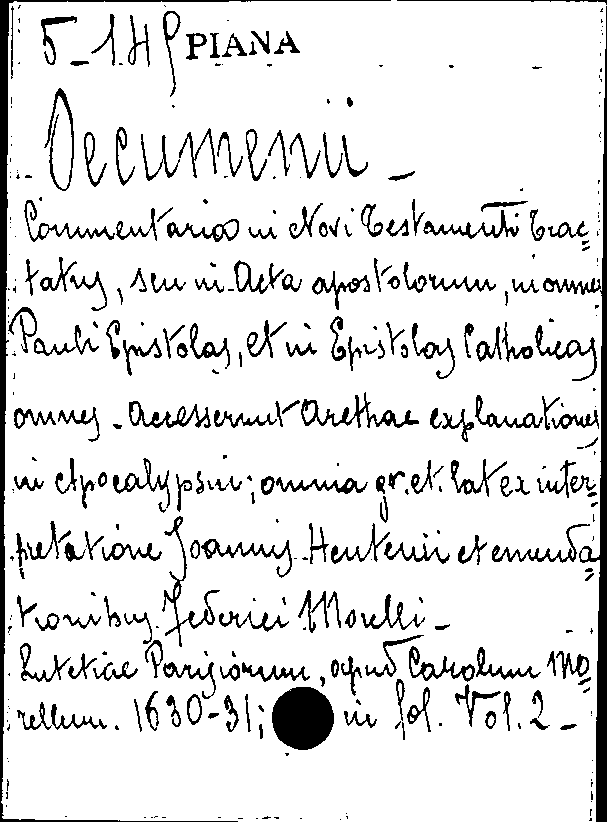 5-149 PIANA
Oecumenii -
Commentaria in Novi Testamenti Trac=
tatus, seu in Acta apostolorum, in omnes
Pauli Epistolas, et in Epistolas Catholicas
omnes - Accesserunt Arethae explanationes
in Apocalypsin; omnia gr. et. lat ex inter=
pretatione Joannis Hentenii et emenda=
tionibus Federici Morelli -
Lutetiae Parisiorum, apud Carolum Mo=
rellum. 1630-31; in fol. Vol. 2 -